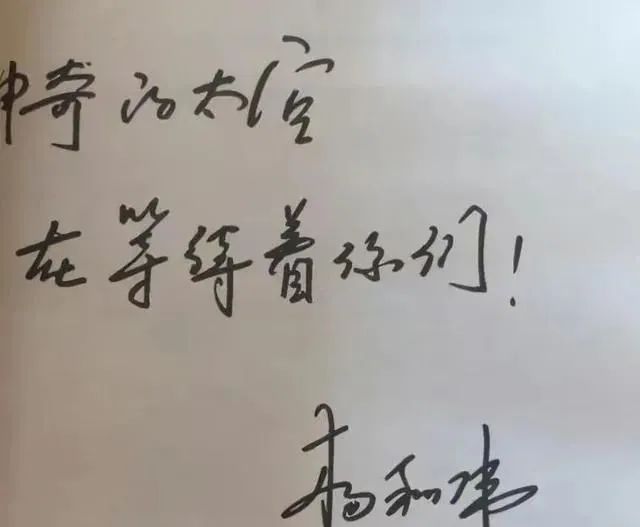 神奇的太空
在等待着你们！
杨利伟